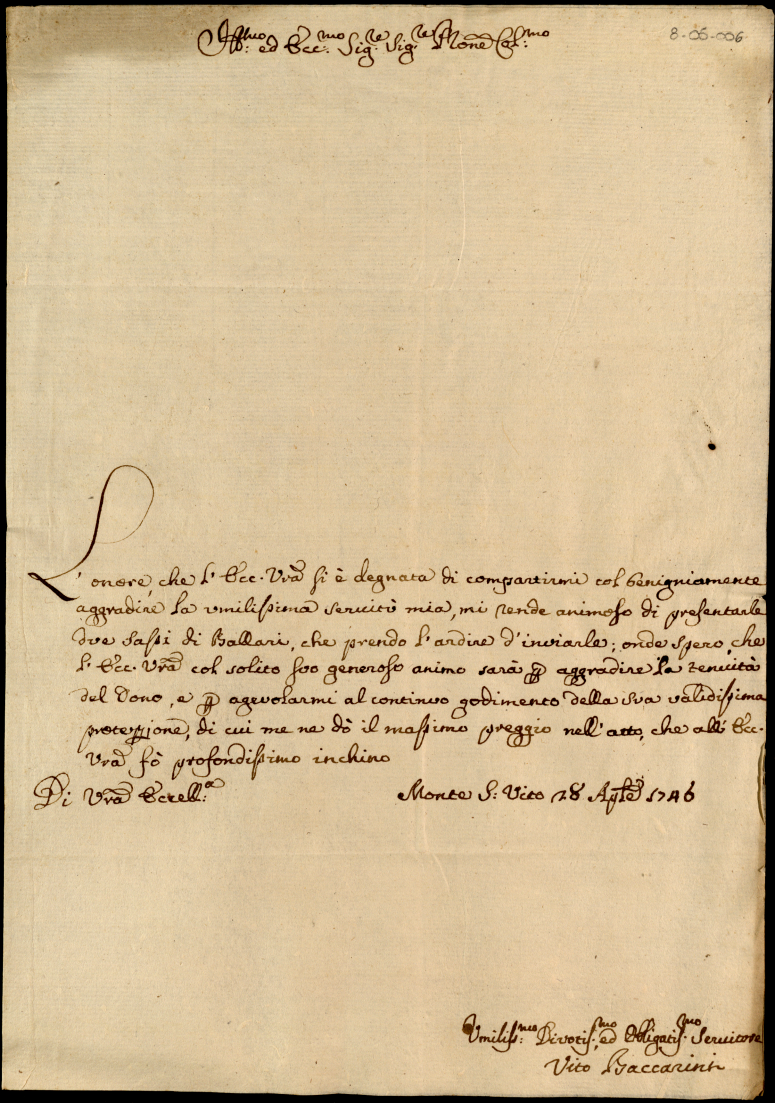 8-05-006
Ill:mo ed Ecc:mo Sig:re Sig:re Prone Col:mo
L'onore, che l'Ecc. Vra si è degnata di compartirmi col benigniamente
aggradire la umilissima servitù mia, mi rende animoso di presentarle
due sassi di Ballari, che prendo l'ardire d'inviarle; onde spero, che
l'Ecc. Vra col solito suo generoso animo sarà p aggradire la tenuità
del Dono, e p agevolarmi al continuo godimento della sua validissima
protezzione, di cui me ne dò il massimo preggio nell'atto, che all'Ecc.
Vra fò profondissimo inchino
Di Vra Eccell:a Monte S: Vito 28 Aple 1746
Umiliss:mo Divotis:mo ed Obligatis:mo Servitore
Vito Baccarini